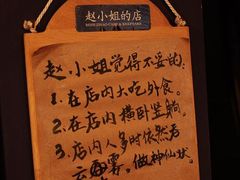 赵小姐的店
赵.小姐觉得不妥的:
1.在店内大吃外食.
2.在店内横卧竖躺.
3.店内人多时依然吞
云吐雾.做神仙状.